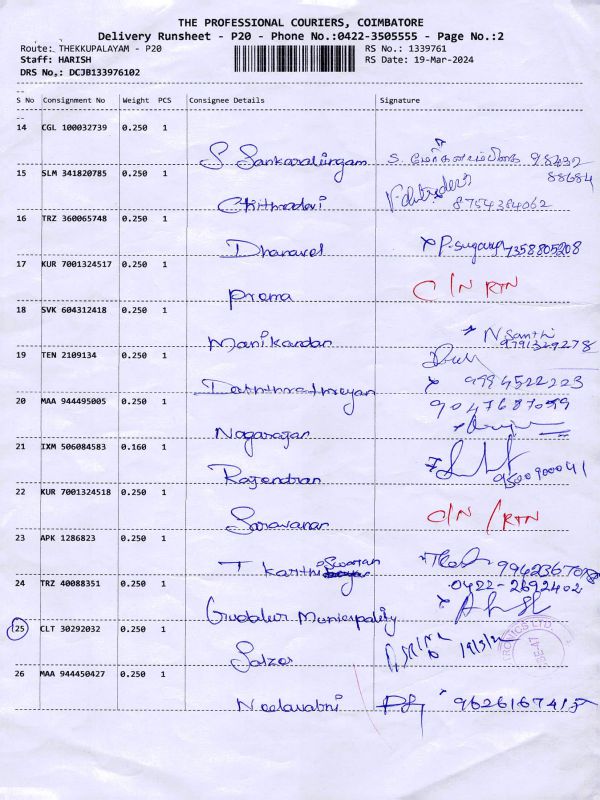 THE PROFESSIONAL COURIERS, COIMBATORE
Delivery Runsheet - P20 - Phone No.:0422-3505555 - Page No.:2
Route: THEKKUPALAYAM - P20 RS No.: 1339761
Staff: HARISH RS Date: 19-Mar-2024
DRS No,: DCJB133976102
S No Consignment No Weight PCS Consignee Details Signature
14 CGL 100032739 0.250 1
S Sankaralingam 98432
88684
15 SLM 341820785 0.250 1
Chithradevi 8754384062
16 TRZ 360065748 0.250 1
Dhanavel P-suganya 7358805208
17 KUR 7001324517 0.250 1
Prema C/N RTN
18 SVK 604312418 0.250 1
Manikandan N Santhi
9791329278
19 TEN 2109134 0.250 1
9994522223
20 MAA 944495005 0.250 1
9047687099
Nagarajan
21 IXM 506084583 0.160 1
Rajendran 9500900041
22 KUR 7001324518 0.250 1
Saravanan C/N / RTN
23 APK 1286823 0.250 1
T Karthi 9942367078
24 TRZ 40088351 0.250 1
0422-2692402
Gudalur Municipality
25 CLT 30292032 0.250 1
Salzer 19/3/24
26 MAA 944450427 0.250 1
Neelavabni 9626167415